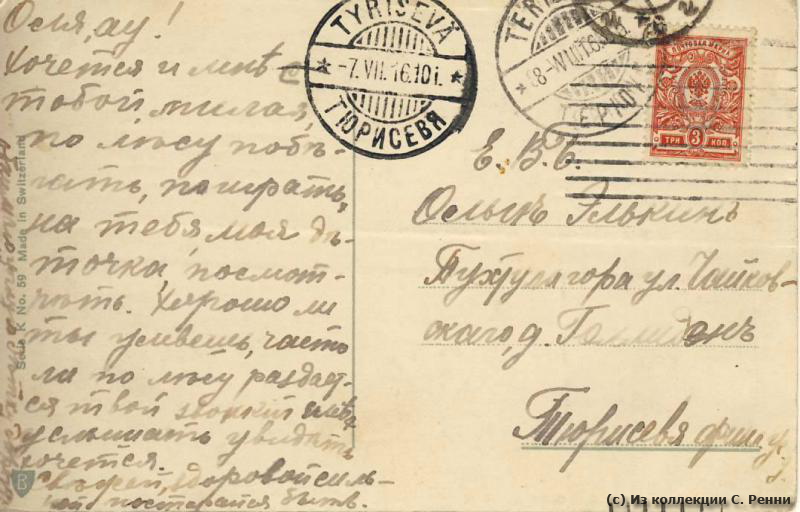 Оля, ау!
Хочется и мнѣ с
тобой, милая,
по лѣсу побѣ-
гать, поиграть,
на тебя, моя дѣ-
точка, посмот-
рѣть. Хорошо ли
ты живешь, часто
ли по лѣсу раздает-
ся твой звонкий смѣх
услышать увидать
хочется.
здоровой силь-
ной постарайся быть.
Serie K No. 59 Made in Switzerland
B
TYRISEVÄ
* -7.VII.16.10 i. *
ТЮРИСЕВЯ
TERI
8-VII.16
ПОЧТОВАЯ МАРКА
ТРИ 3 КОП.
Е. В. Б.
Олькѣ Элькинъ
ул. Чайков-
скаго, д.
Тюрисевя
(c) Из коллекции С. Ренни